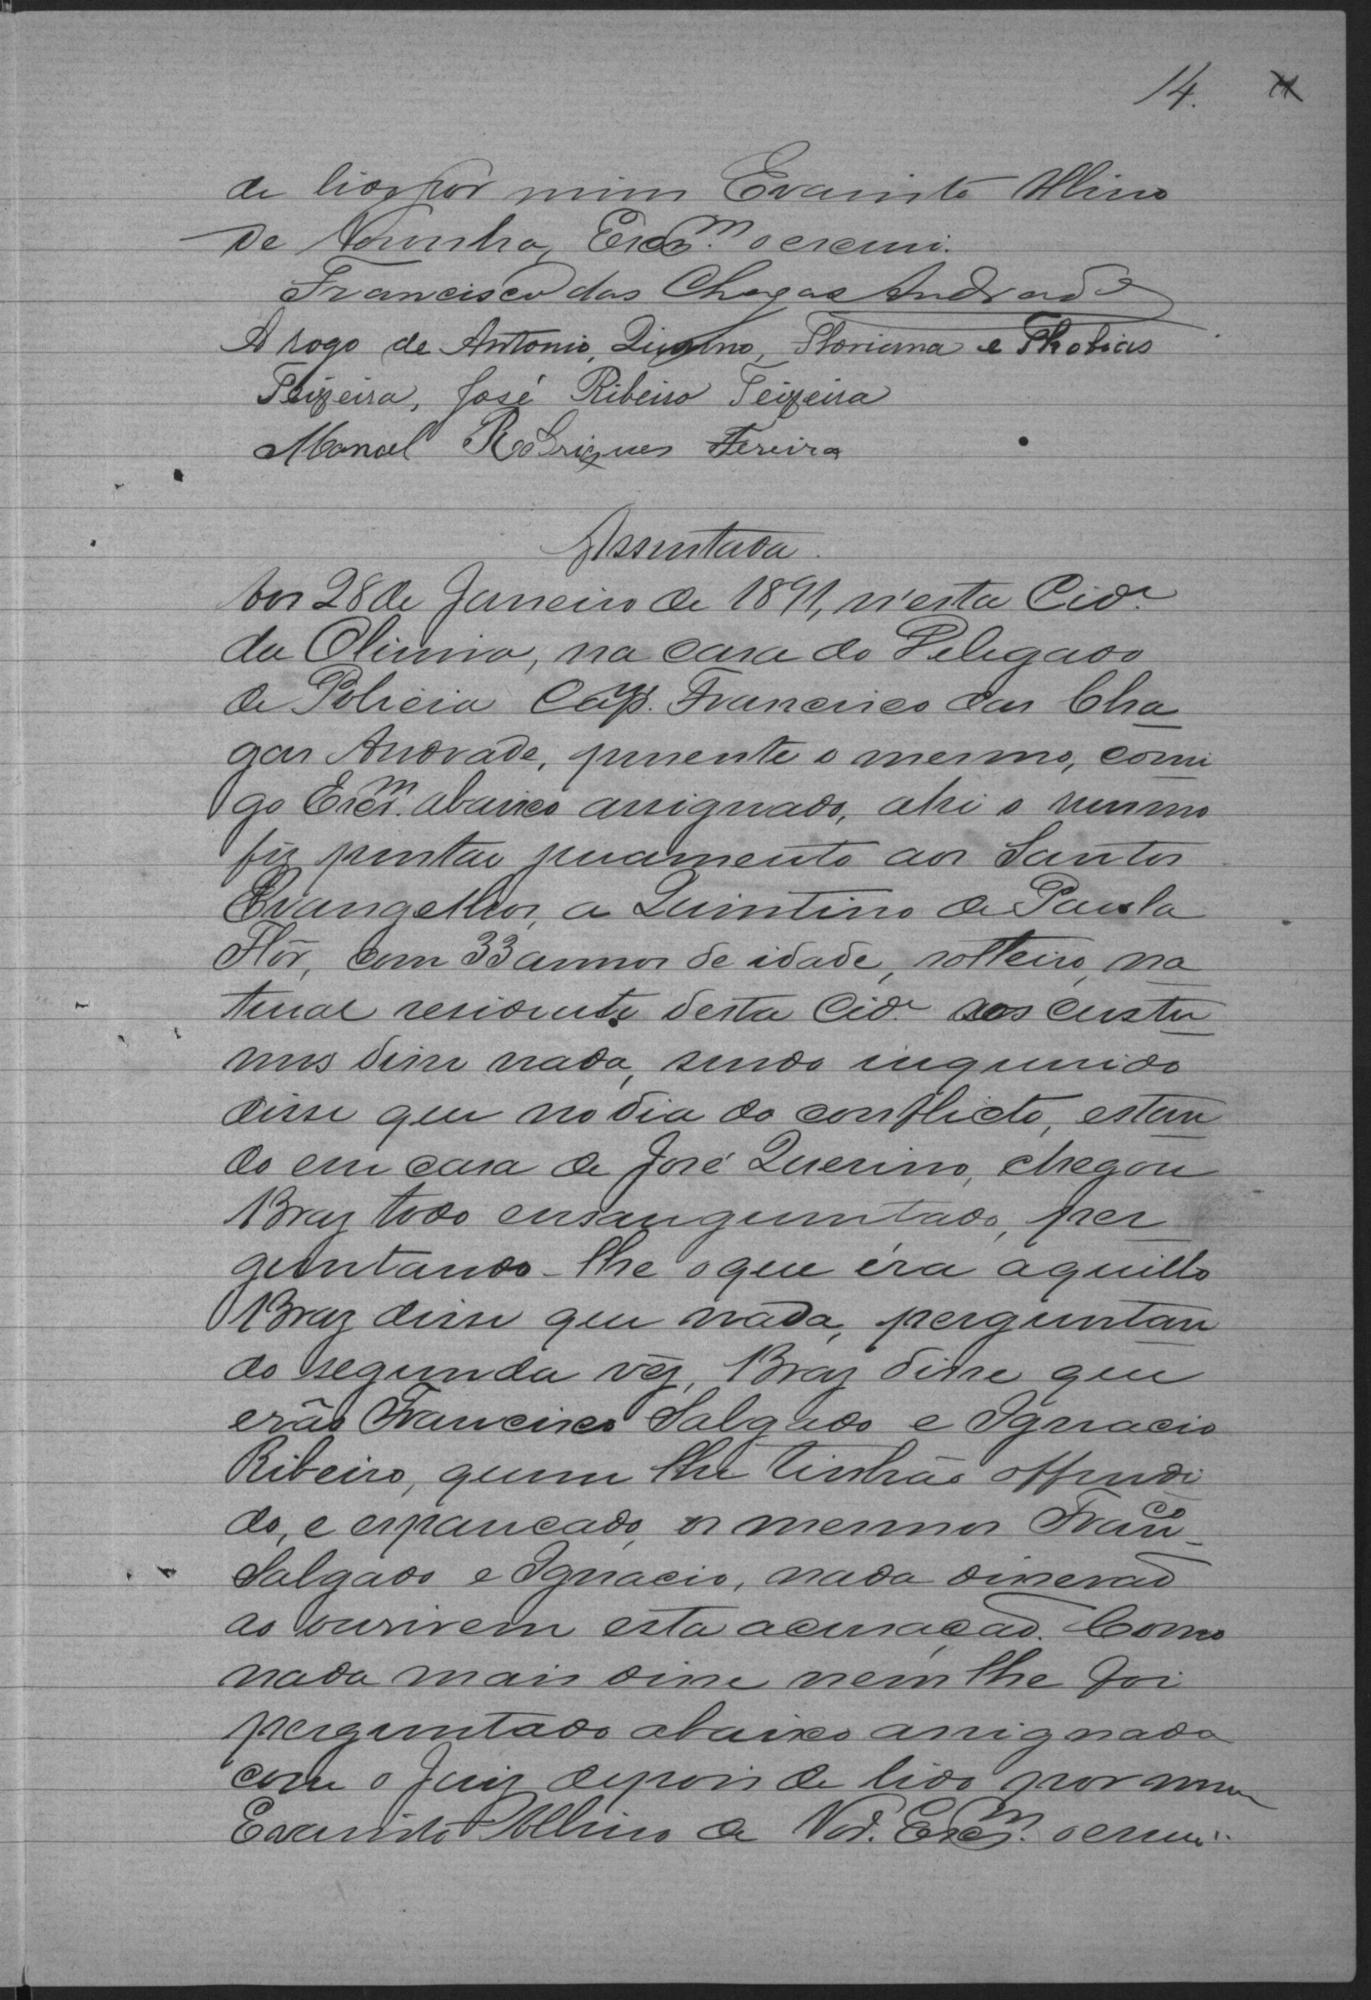 14.
de lido por mim Evaristo Albino
de Noronha, Escr.m o escrevi.
Francisco das Chagas Andrade
A rogo de Antonio, Floriana e Thobias
Teixeira, José Ribeiro Teixeira
Manoel Rodrigues Fereira
Assentada.
Aos 28 de Janeiro de 1891, n'esta Cid.e
da Olimia, na casa do Delegado
de Policia Cap.m Francisco das Cha
gas Andrade, presente o mesmo, comi
go Escr.m abaixo assignado, ahi o mesmo
fez prestar juramento aos Santos
Evangelhos, a Quintino de Paula
Flôr, com 33 annos de idade, solteiro, na
tural residente desta Cid.e aos custu
mes disse nada, sendo inquerido
disse que no dia do conflicto, estan
do em casa de José Querino, chegou
Braz todo ensanguentado, per
guntando-lhe o que éra aquillo
Braz disse que nada, perguntan
do segunda vêz, Braz disse que
erão Francisco Salgado e Ignacio
Ribeiro, quem lhe tinhão offendi
do, e espancado, os mesmos Fran.co
Salgado e Ignacio, nada disserão
ao ouvirem esta acusação. Como
nada mais disse nem lhe foi
perguntado abaixo assignado
com o Juiz depois de lido por mim
Evaristo Albino de Nor. Escr.m o escrevi.